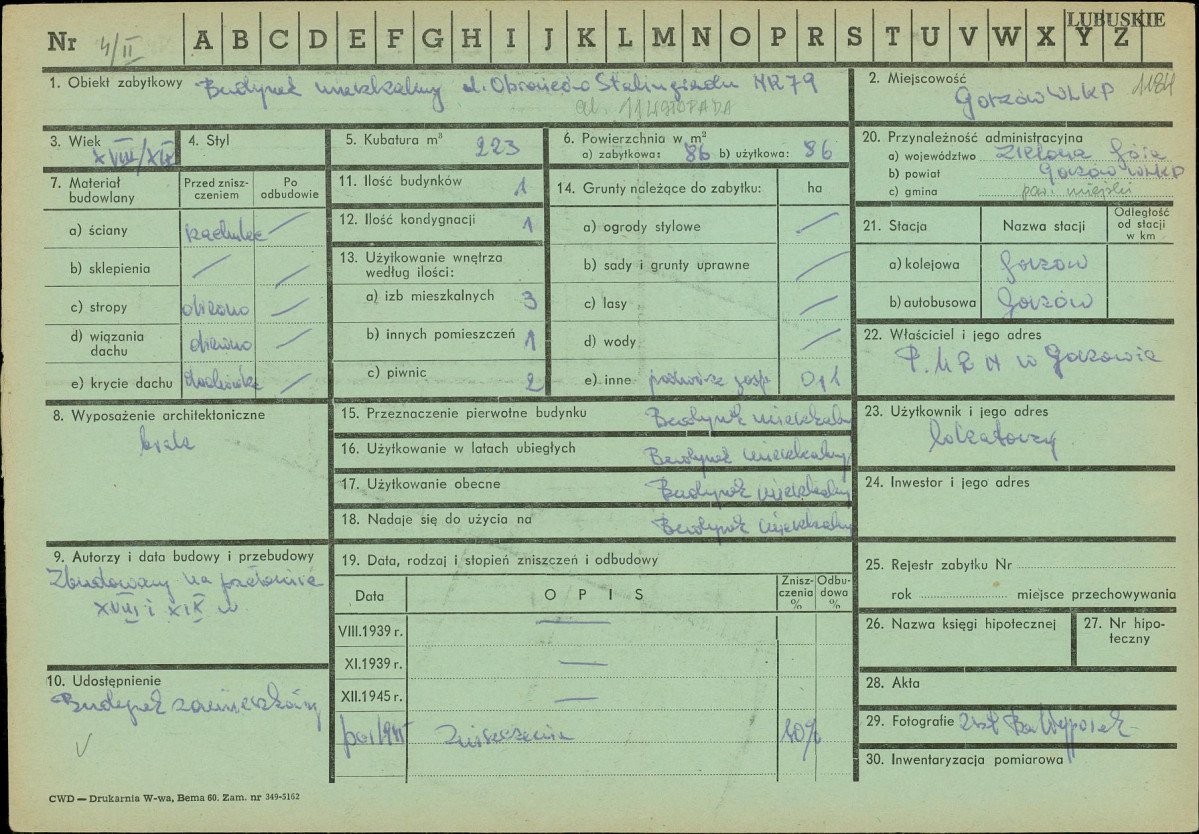 LUBUSKIE
Nr 4/II A B C D E F G H I J K L M N O P R S T U V W X Y Z
1. Obiekt zabytkowy Budynek mieszkalny ul. Obrońców Stalingradu NR 79
ul. 11 LISTOPADA
2. Miejscowość
Gorzów WLKP 1184
3. Wiek
XVIII/XIX
4. Styl
5. Kubatura m³ 223
6. Powierzchnia w m²
a) zabytkowa: 86 b) użytkowa: 86
7. Materiał budowlany
Przed zniszczeniem
Po odbudowie
a) ściany —
b) sklepienia — —
c) stropy drewno —
d) wiązania dachu drewno —
e) krycie dachu dachówka —
8. Wyposażenie architektoniczne
brak
9. Autorzy i data budowy i przebudowy
Zbudowany na przełomie
XVIII i XIX w
10. Udostępnienie
Budynek zamieszkany
11. Ilość budynków 1
12. Ilość kondygnacji 1
13. Użytkowanie wnętrza według ilości:
a) izb mieszkalnych 3
b) innych pomieszczeń 1
c) piwnic 2
14. Grunty należące do zabytku: ha
a) ogrody stylowe —
b) sady i grunty uprawne —
c) lasy —
d) wody —
e) inne podwórze gosp. 0,1
15. Przeznaczenie pierwotne budynku Budynek mieszkalny
16. Użytkowanie w latach ubiegłych Budynek mieszkalny
17. Użytkowanie obecne Budynek mieszkalny
18. Nadaje się do użycia na Budynek mieszkalny
19. Data, rodzaj i stopień zniszczeń i odbudowy
Data OPIS Zniszczenia % Odbudowa %
VIII.1939 r. —
XI.1939 r. —
XII.1945 r. —
po 1945 Zniszczenia 40%
20. Przynależność administracyjna
a) województwo Zielona Góra
b) powiat Gorzów WLKP
c) gmina pow. miejski
21. Stacja Nazwa stacji Odległość od stacji w km
a) kolejowa Gorzów
b) autobusowa Gorzów
22. Właściciel i jego adres
P.M.R.N w Gorzowie
23. Użytkownik i jego adres
lokatorzy
24. Inwestor i jego adres
25. Rejestr zabytku Nr
rok miejsce przechowywania
26. Nazwa księgi hipotecznej
27. Nr hipoteczny
28. Akta
29. Fotografie
30. Inwentaryzacja pomiarowa
CWD — Drukarnia W-wa, Bema 60. Zam. nr 349-5162